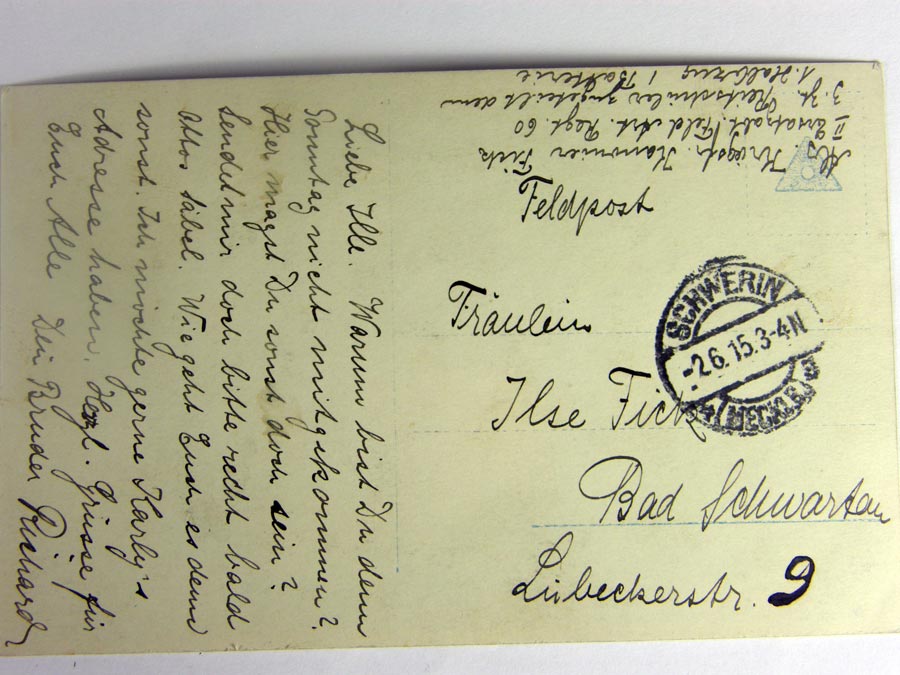 Liebe Ille. Warum bist Du denn
Sonntag nicht mitgekommen?
Hier magst Du sonst doch sein?
Sendet mir doch bitte recht bald
Ottos Säbel. Wie geht Euch es denn
sonst. Ich möchte gerne Karly's
Adresse haben. Herzl. Grüsse für
Euch Alle Dein Bruder Richard
Abs. Kriegsfr. Kanonier Fick
II Ersatzabt. Feld Art. Regt. 60
z. Zt. Reitschüler zugeteilt dem
1. Halbzug 1 Batterie
Feldpost
Fräulein
Ilse Fick
Bad Schwartau
Lübeckerstr. 9
SCHWERIN
-2.6.15.3-4N
(MECKLB)